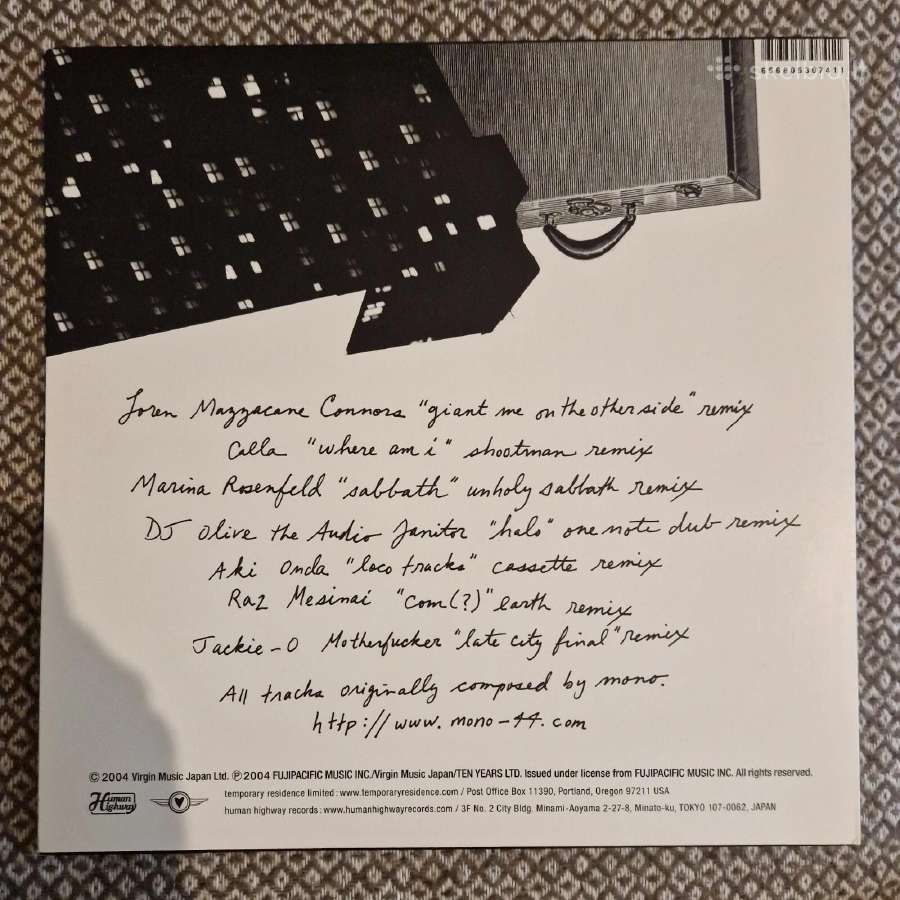 skelbiu.lt
656605307411
Loren Mazzacane Connors "giant me on the other side" remix
Calla "where am i" shootman remix
Marina Rosenfeld "sabbath" unholy sabbath remix
DJ Olive the Audio Janitor "halo" one note dub remix
Aki Onda "loco tracks" cassette remix
Raz Mesinai "com(?)" earth remix
Jackie-O Motherfucker "late city final" remix
All tracks originally composed by mono.
http://www.mono-44.com
© 2004 Virgin Music Japan Ltd. ℗ 2004 FUJIPACIFIC MUSIC INC./Virgin Music Japan/TEN YEARS LTD. Issued under license from FUJIPACIFIC MUSIC INC. All rights reserved.
Human Highway
temporary residence limited : www.temporaryresidence.com / Post Office Box 11390, Portland, Oregon 97211 USA
human highway records : www.humanhighwayrecords.com / 3F No. 2 City Bldg. Minami-Aoyama 2-27-8, Minato-ku, TOKYO 107-0062, JAPAN